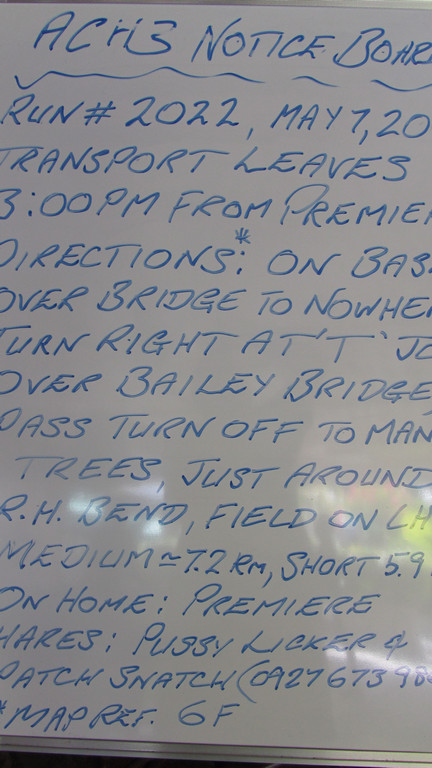 ACH3 NOTICE BOAR
RUN # 2022, MAY 7, 20
TRANSPORT LEAVES
3:00PM FROM PREMIE
DIRECTIONS:* ON BAS
OVER BRIDGE TO NOWHE
TURN RIGHT AT 'T' JC
OVER BAILEY BRIDGE,
PASS TURN OFF TO MAN
TREES, JUST AROUND
R.H. BEND, FIELD ON LH
MEDIUM ≈ 7.2 Km, SHORT 5.9
ON HOME: PREMIERE
HARES: PUSSY LICKER &
PATCH SNATCH (092767398
*MAP REF. 6F